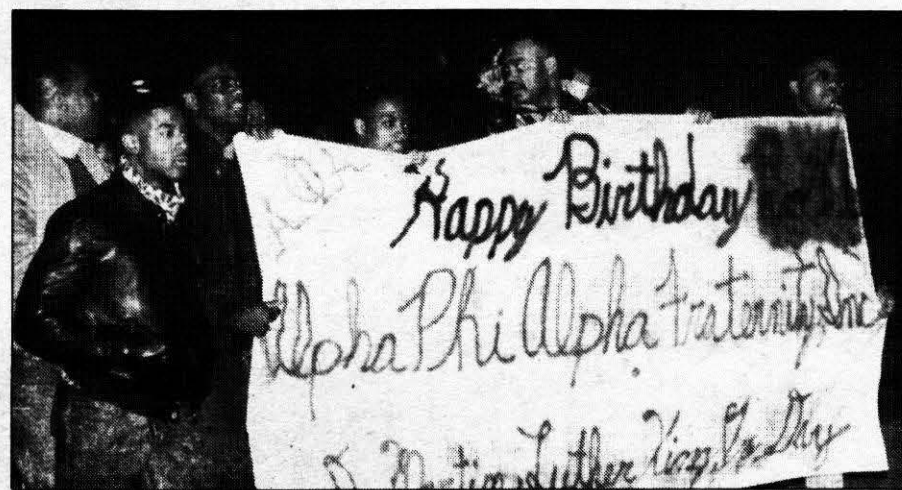 "Happy Birthday
Alpha Phi Alpha Fraternity, Inc
Martin Luther King, Jr. Day